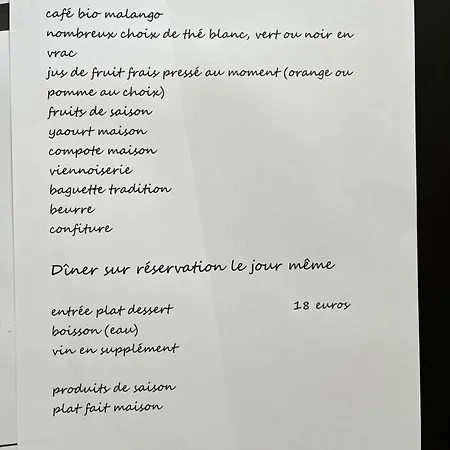 café bio malango
nombreux choix de thé blanc, vert ou noir en
vrac
jus de fruit frais pressé au moment (orange ou
pomme au choix)
fruits de saison
yaourt maison
compote maison
viennoiserie
baguette tradition
beurre
confiture
Dîner sur réservation le jour même
entrée plat dessert 18 euros
boisson (eau)
vin en supplément
produits de saison
plat fait maison